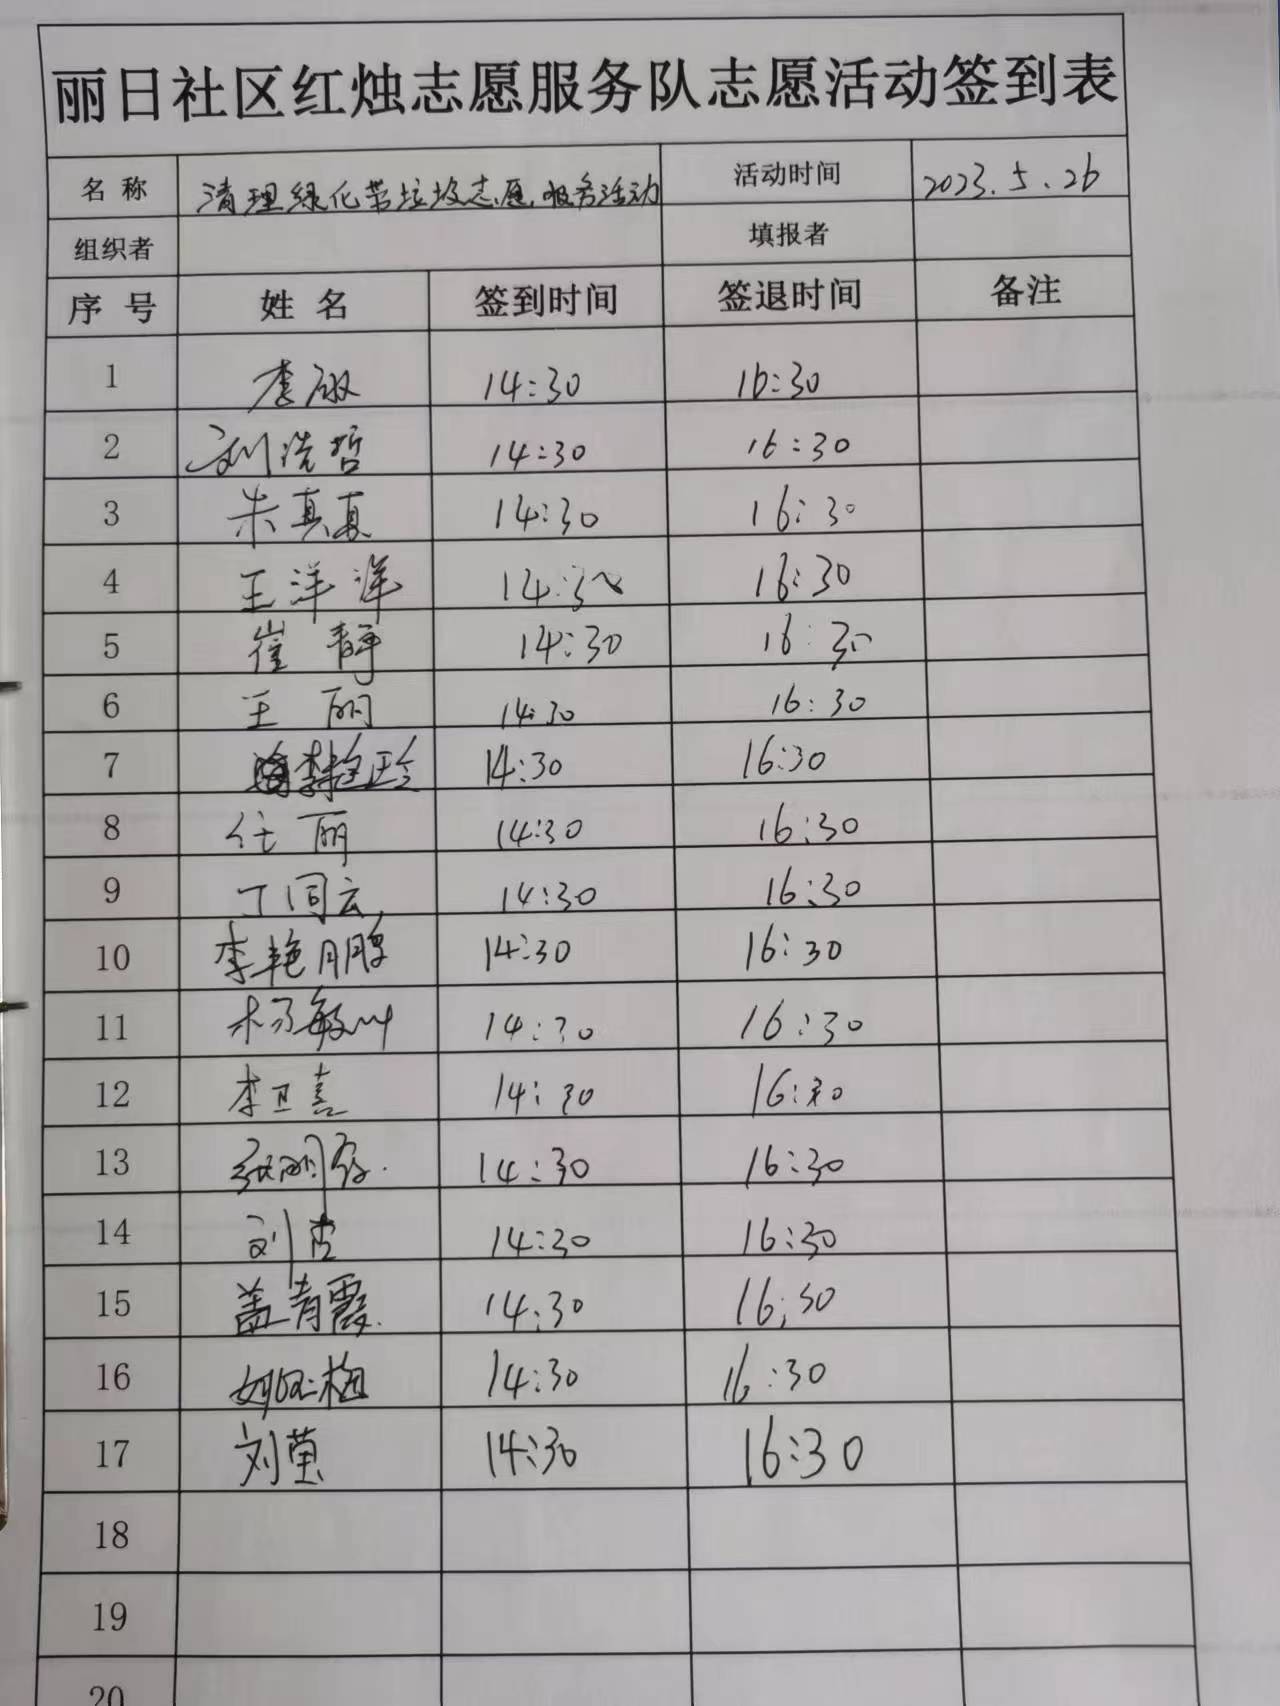 丽日社区红烛志愿服务队志愿活动签到表
名 称 清理绿化带垃圾志愿服务活动 活动时间 2023.5.26
组织者 填报者
序 号 姓 名 签到时间 签退时间 备注
1 李 14:30 16:30
2 刘浩哲 14:30 16:30
3 朱真真 14:30 16:30
4 王洋洋 14:30 16:30
5 崔静 14:30 16:30
6 王丽 14:30 16:30
7 李艳玲 14:30 16:30
8 任丽 14:30 16:30
9 丁同云 14:30 16:30
10 李艳鹏 14:30 16:30
11 杨敏 14:30 16:30
12 李卫喜 14:30 16:30
13 张 14:30 16:30
14 刘杰 14:30 16:30
15 盖青霞 14:30 16:30
16 梅 14:30 16:30
17 刘莹 14:30 16:30
18
19
20